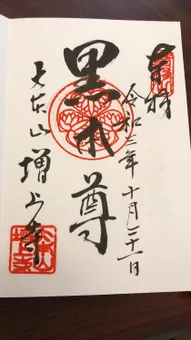 奉拝
令和三年十月三十一日
黒本尊
大本山増上寺